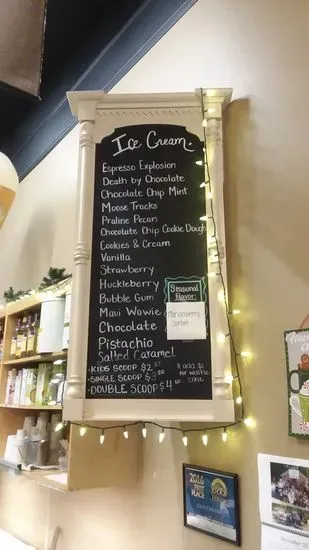 Ice Cream.
Espresso Explosion
Death by Chocolate
Chocolate Chip Mint
Moose Tracks
Praline Pecan
Chocolate Chip Cookie Dough
Cookies & Cream
Vanilla
Strawberry
Huckleberry
Bubble Gum
Maui Wowie
Chocolate
Pistachio
Salted Caramel
Seasonal
Flavor:
Marionberry
Sorbet
KIDS SCOOP $2.
SINGLE SCOOP $3.
DOUBLE SCOOP $4.
add $1
for waffle
cone
2016
PLACE